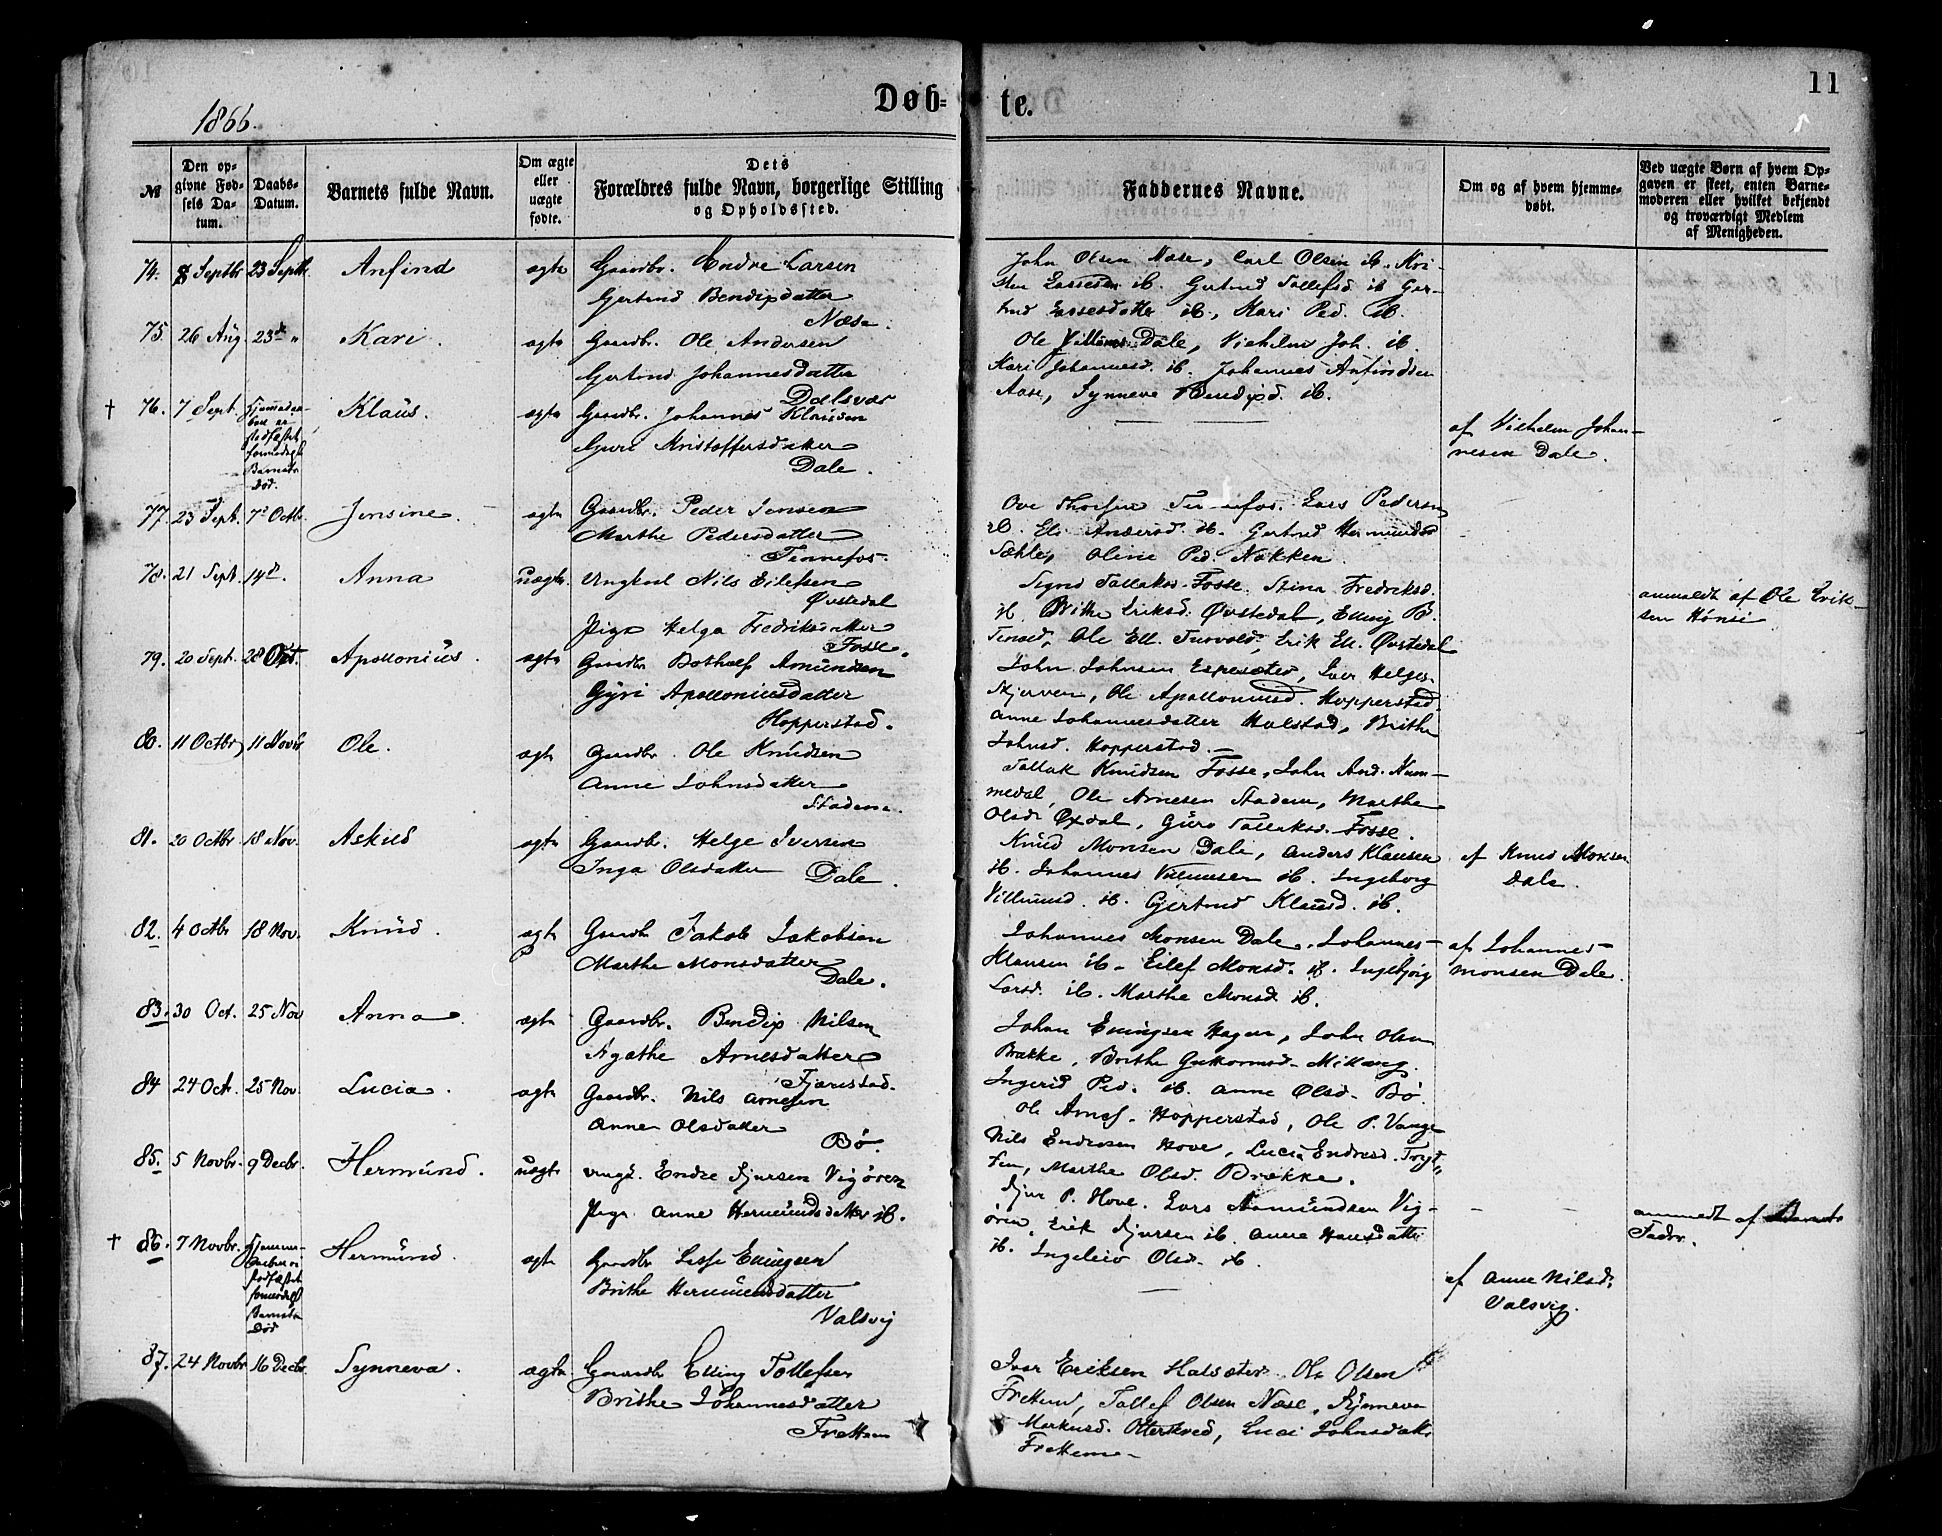 1866.
Døb-
te.
11
№
Den op-
givne Fød-
sels Da-
tum.
Daabs-
Datum.
Barnets fulde Navn.
Om ægte
eller
uægte
fødte.
Dets
Forældres fulde Navn, borgerlige Stilling
og Opholdssted.
Faddernes Navne.
Om og af hvem hjemme-
døbt.
Ved uægte Børn af hvem Op-
gaven er skeet, enten Barne-
moderen eller hvilket bekjendt
og troværdigt Medlem
af Menigheden.
74. 8 Septbr 23 Septbr. Anfind ægte Gaardbr. Endre Larsen
Gertrud Bendixdatter
Næse.
John Olsen Næse, Carl Olsen ib. Kri-
sten Lassesen ib. Gertrud Tollefsd ib Ger-
trud Lassesdatter ib, Kari Ped. ib.
75. 26 Aug. 23de " Kari. ægte Gaardbr. Ole Andersen
Gertrud Johannesdatter
Dalsvær
Ole Villumsen Dale, Vilhelm Joh. ib.
Kari Johannesd. ib. Johannes Anfindsen
Aase, Synneve Bendixd. ib.
† 76. 7 Sept. Hjemmedaa-
ben er
stadfæstet
formedelst
Barnets
Død.
Klaus. ægte Gaardbr. Johannes Klausen
Guri Kristoffersdatter
Dale.
af Vilhelm Johan-
nesen Dale.
77. 23 Sept. 7de Octb. Jensine. ægte Gaardbr. Peder Jensen
Marthe Pedersdatter
Tennefos.
Ove Thorsen Tennefos. Lars Pedersen
ib. Eli Andersd. ib. Gertrud Hermundsd
Oline Ped. Nokken.
78. 21 Sept. 14de. Anna uægte. Ungkarl Nils Eilefsen
Øvstedal
Pige Helga Fredriksdatter
Fosse.
Sigrid Tollaksd. Fosse. Stina Fredriksd.
ib. Brithe Eriksd. Øvstedal, Elling B.
Ole Ell. Turvold, Erik El. Øvstedal
anmeldt af Ole Erik-
sen Hønsi
79. 20 Sept. 28 Oct. Apollonius. ægte Gaardbr Botholf Amundsen
Gyri Apolloniusdatter
Hopperstad.
John Johnsen Espesæter, Iver Helges.
Skjerven, Ole Apolloniusd. Hopperstad.
Anne Johannesdatter Halstad, Brithe
Johnsd. Hopperstad.
80. 11 Octbr 11 Novbr. Ole. ægte Gaardbr. Ole Knudsen
Anne Johnsdatter
Stadem.
Tollak Knudsen Fosse, John And. Num-
medal, Ole Arnesen Stadem, Marthe
Olsdr Oxdal, Guro Tollaksd. Fosse.
81. 20 Octbr 18 Nov. Askild ægte Gaardbr. Helge Iversen
Inga Olsdatter Dale.
Knud Monsen Dale, Anders Klausen
ib. Johannes Villumsen ib. Ingeborg
Villumsd. ib. Gjertrud Klausd. ib.
af Knud Monsen
Dale.
82. 4 Octbr 18 Nov. Knud. ægte Gaardb Jakob Jakobsen
Marthe Monsdatter
Dale.
Johannes Monsen Dale, Johannes
Klausen ib. Eilef Monsd. ib. Ingebjørg
Larsd. ib. Marthe Monsd ib.
af Johannes
Monsen Dale.
83. 30 Oct. 25 Nov Anna. ægte Gaardbr. Bendix Nilsen
Agathe Arnesdatter
Fjærestad.
Johan Ellingsen Hagen, John Olsen
Brække, Brithe Guttormsd. Millang.
Ingerid Ped. ib. Anne Olsd. Bø.
84 24 Oct. 25 Nov. Lucia. ægte Gaardbr. Nils Arnesen
Anne Olsdatter
Bø.
Ole Arnes. Hopperstad, Ole P. Vange
Nils Endresen Hove, Lucia Endresd. Tryt-
ten, Marthe Olsd. Brække.
85. 5 Novbr. 9 Decbr. Hermund. uægte ungk. Endre Sjursen Vigøren
Pige Anne Hermundsdatter ib.
Sjur P. Hove. Lars Aamundsen Vig-
øren, Erik Sjursen ib. Anne Hansdatter
ib. Ingeleiv Olsd. ib.
anmeldt af Barnets
Fader.
† 86. 7 Novbr. Hjemme-
daaben er
stadfæstet
formedelst
Barnets
Død
Hermund. ægte Gaardbr Lasse Ellingsen
Brithe Hermundsdatter
Valsvig
af Anne Nilsd.
Valsvig.
87. 24 Novbr 16 Decbr. Synneva. ægte Gaardbr Elling Tollefsen
Brithe Johannesdatter
Frettem
Ivar Eriksen Halsæter. Ole Olsen
Frettem, Tollef Olsen Næse, Synneva
Markusd. Otterskred, Luci Johnsdatter
Frettem.